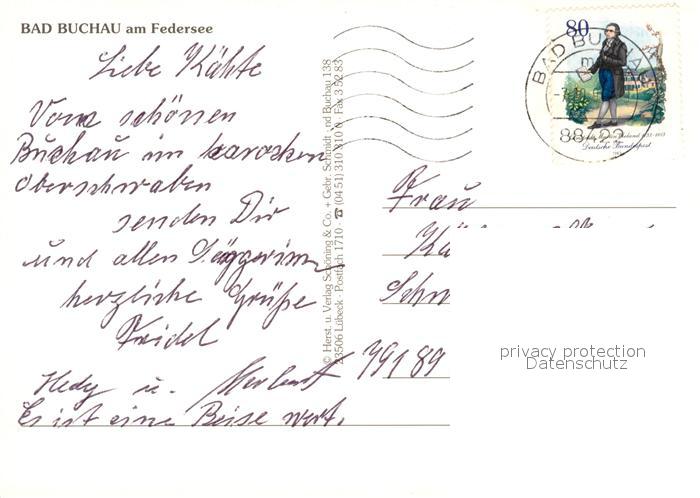 BAD BUCHAU am Federsee
Liebe Kähte
Vom schönen
Buchau im barocken
Oberschwaben
senden Dir
und allen
herzliche Grüße
Fridel
Hedy u. Herbert
Es ist eine Reise wert.
© Herst. u. Verlag Schöning & Co. + Gebr. Schmidt · nd Buchau 138
23506 Lübeck · Postfach 1710 · ☎ (04 51) 310 310 N Fax 3 52 83
80
BAD BUCHAU
88422
Deutsche Bundespost
Frau
Kä
Schn
79189
privacy protection
Datenschutz